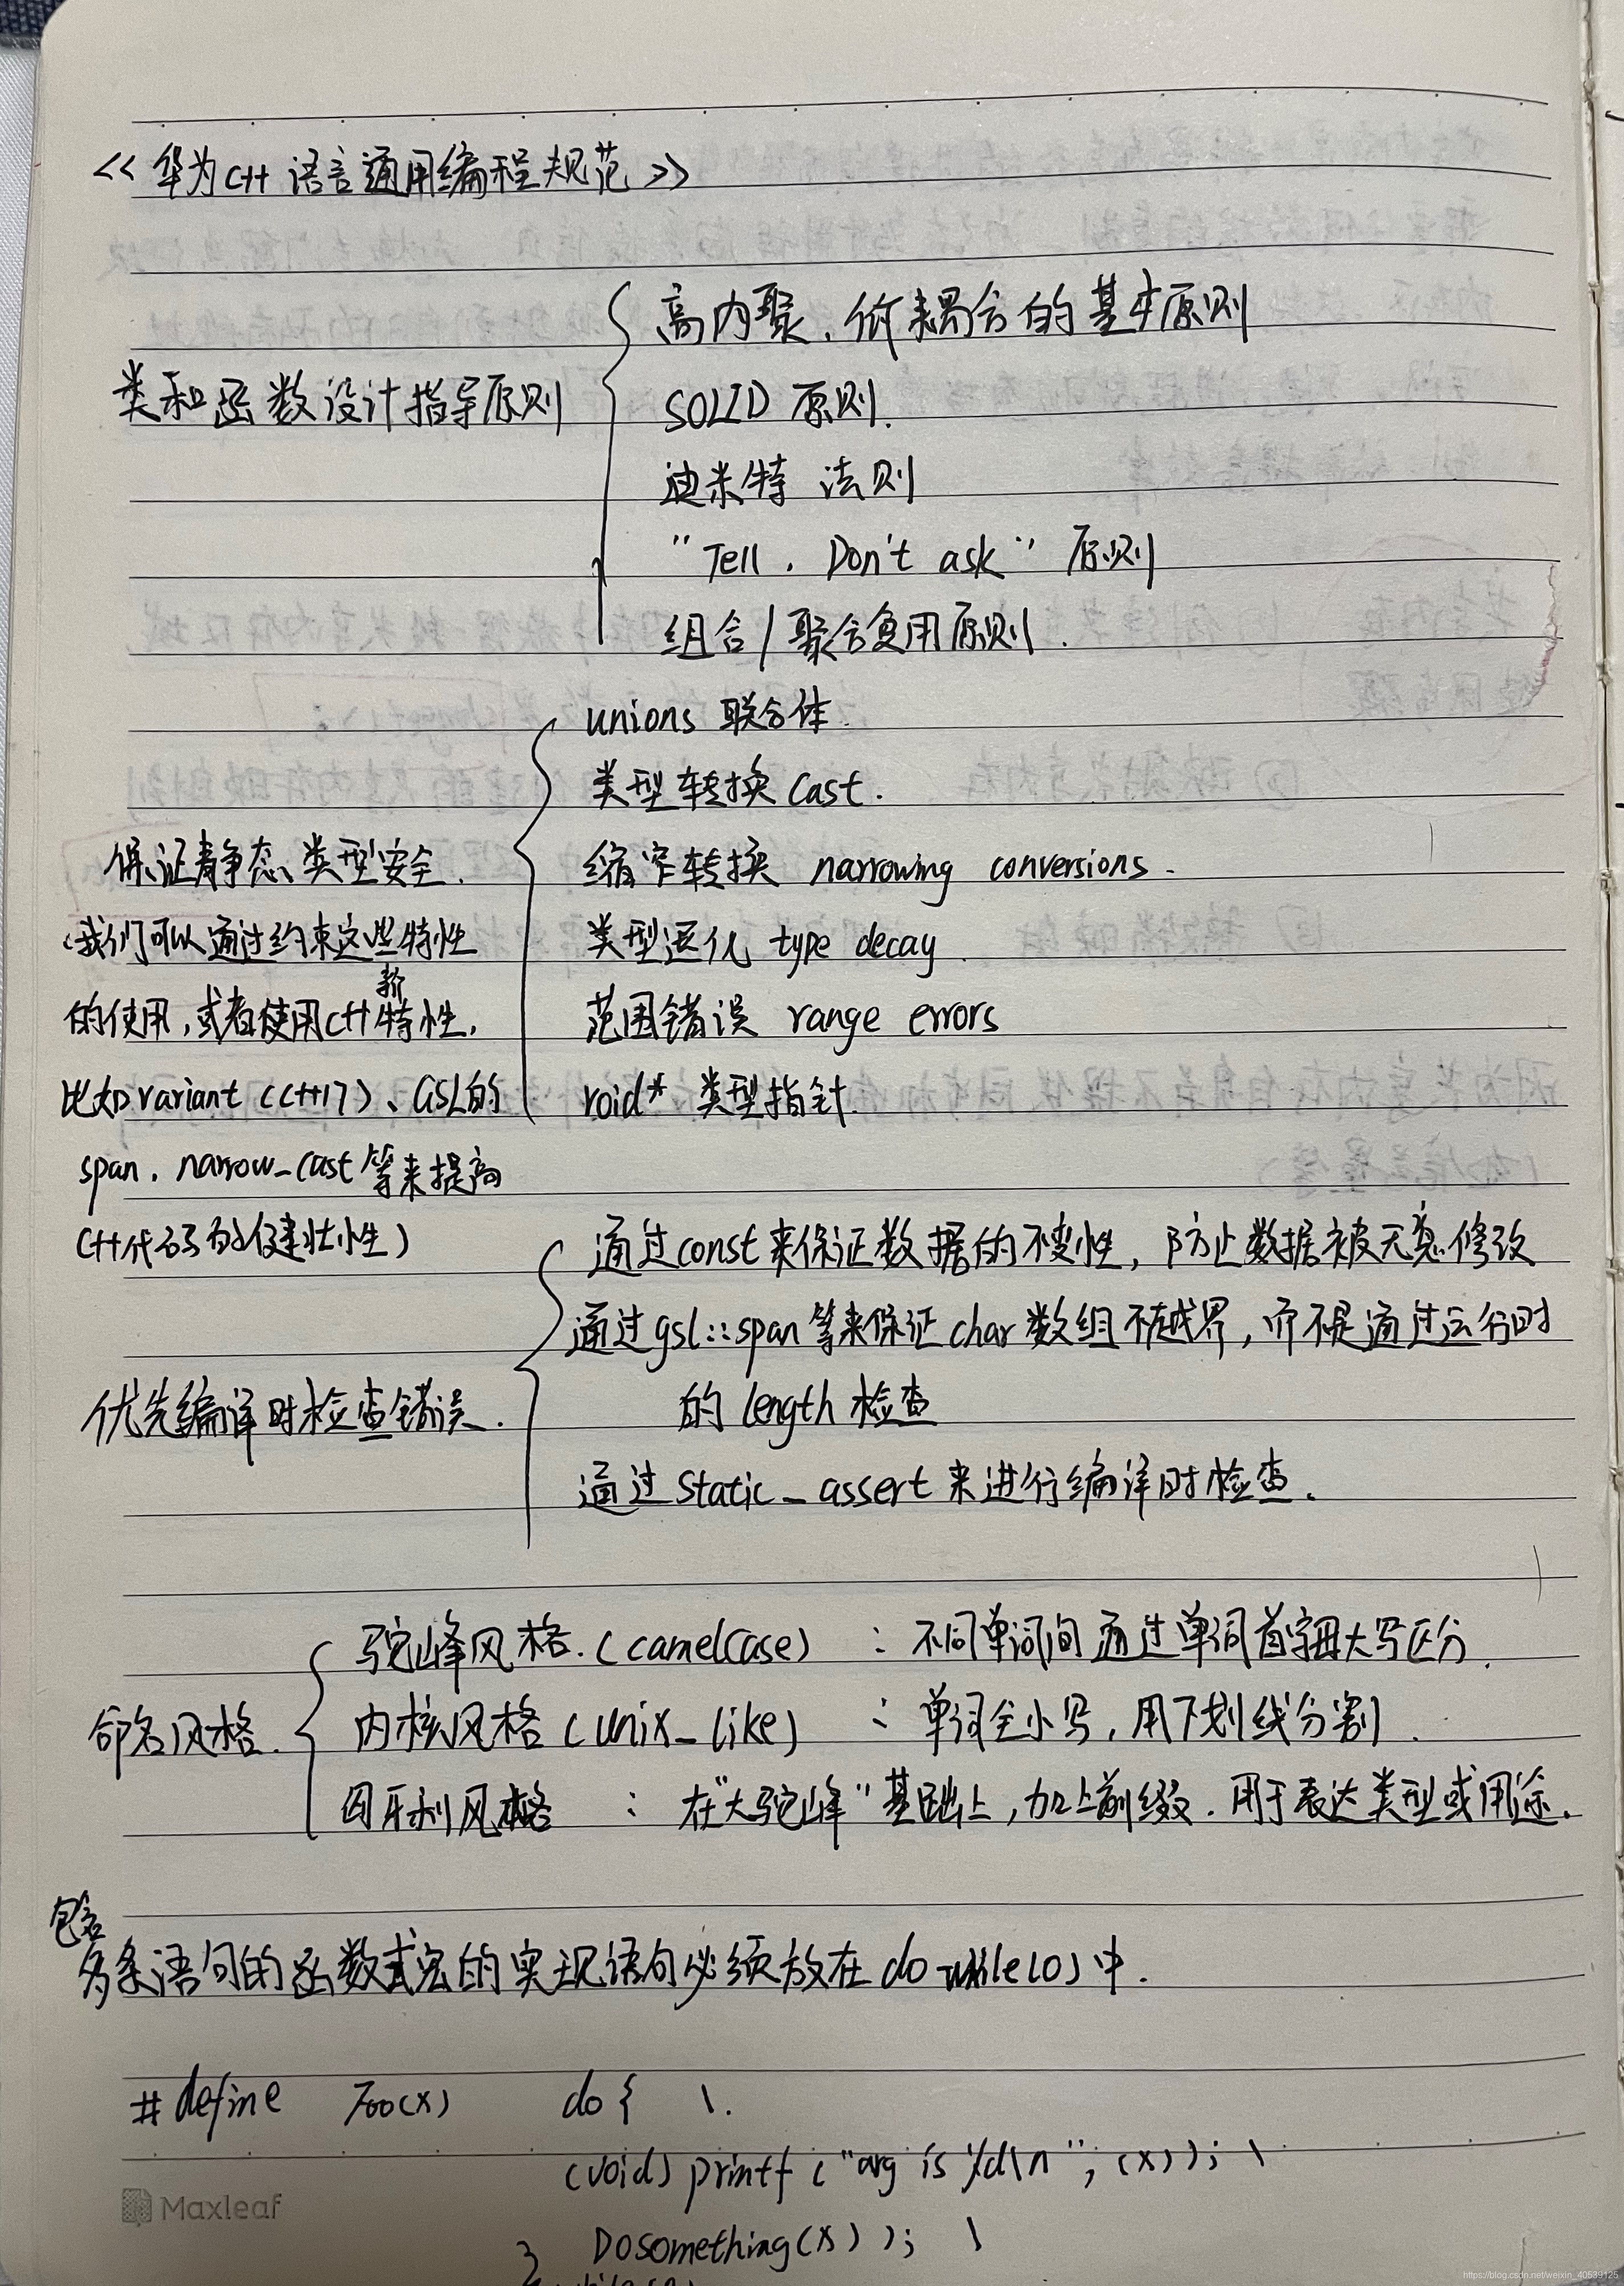 << 华为C++语言通用编程规范 >>
类和函数设计指导原则
高内聚、低耦合的基本原则
SOLID 原则.
迪米特 法则
"Tell, Don't ask" 原则
组合/聚合复用原则.
保证静态类型安全.
(我们可以通过约束这些特性
的使用,或者使用C++新特性,
比如variant (C++17)、GSL的
span, narrow_cast等来提高
C++代码的健壮性)
unions 联合体.
类型转换 cast.
缩窄转换 narrowing conversions.
类型退化 type decay.
范围错误 range errors
void* 类型指针.
优先编译时检查错误.
通过const来保证数据的不变性, 防止数据被无意修改
通过gsl::span等来保证char数组不越界, 而不是通过运行时
的length检查
通过static_assert来进行编译时检查.
命名风格.
驼峰风格.(camelCase) : 不同单词间通过单词首字母大写区分.
内核风格(unix_like) : 单词全小写, 用下划线分割.
匈牙利风格 : 在"大驼峰"基础上, 加上前缀. 用于表达类型或用途.
包含
多条语句的函数式宏的实现语句必须放在do while(0)中.
#define Foo(x) do { \.
(void) printf ("arg is %d\n", (x)); \
DoSomething(x) ); \
}
while(0)
Maxleaf
https://blog.csdn.net/weixin_40539125